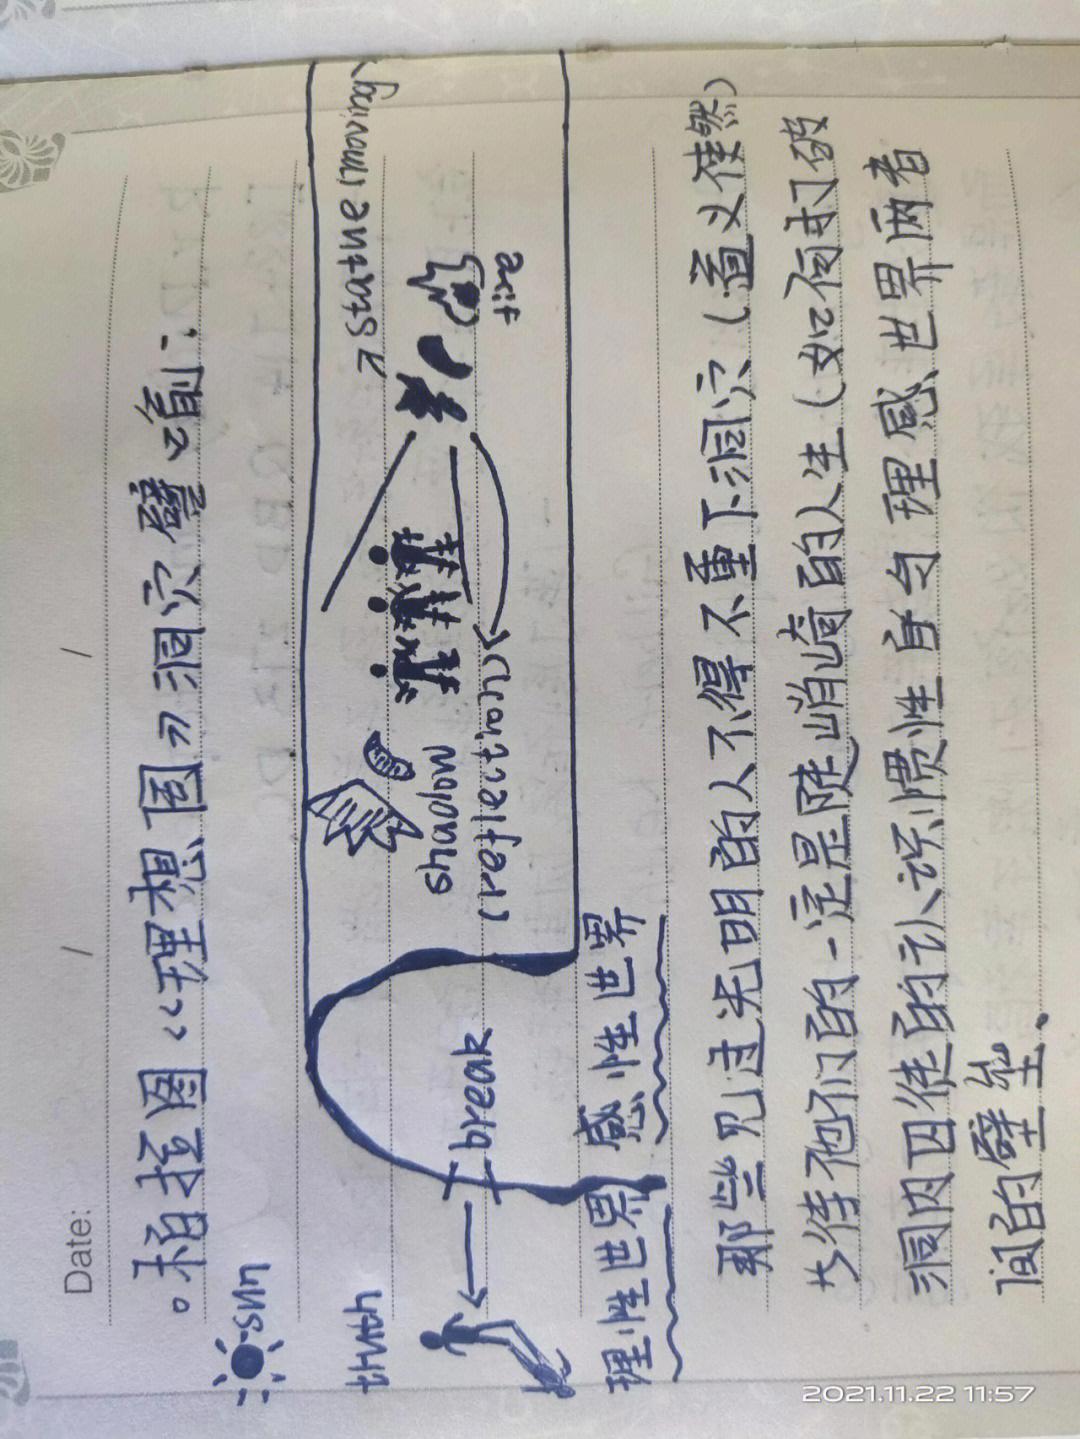 Date: / /
。柏拉图《理想国》洞穴譬喻:
sun
statue (moving)
truth
break
shadow
(reflection)
理性世界 感性世界
那些见过光明的人不得不重下洞穴(道义使然)
等待他们的一定是陡峭崎的人生(如何打破
洞内囚徒的认识惯性身与理感世界两者
间的壁垒.
2021.11.22 11:57